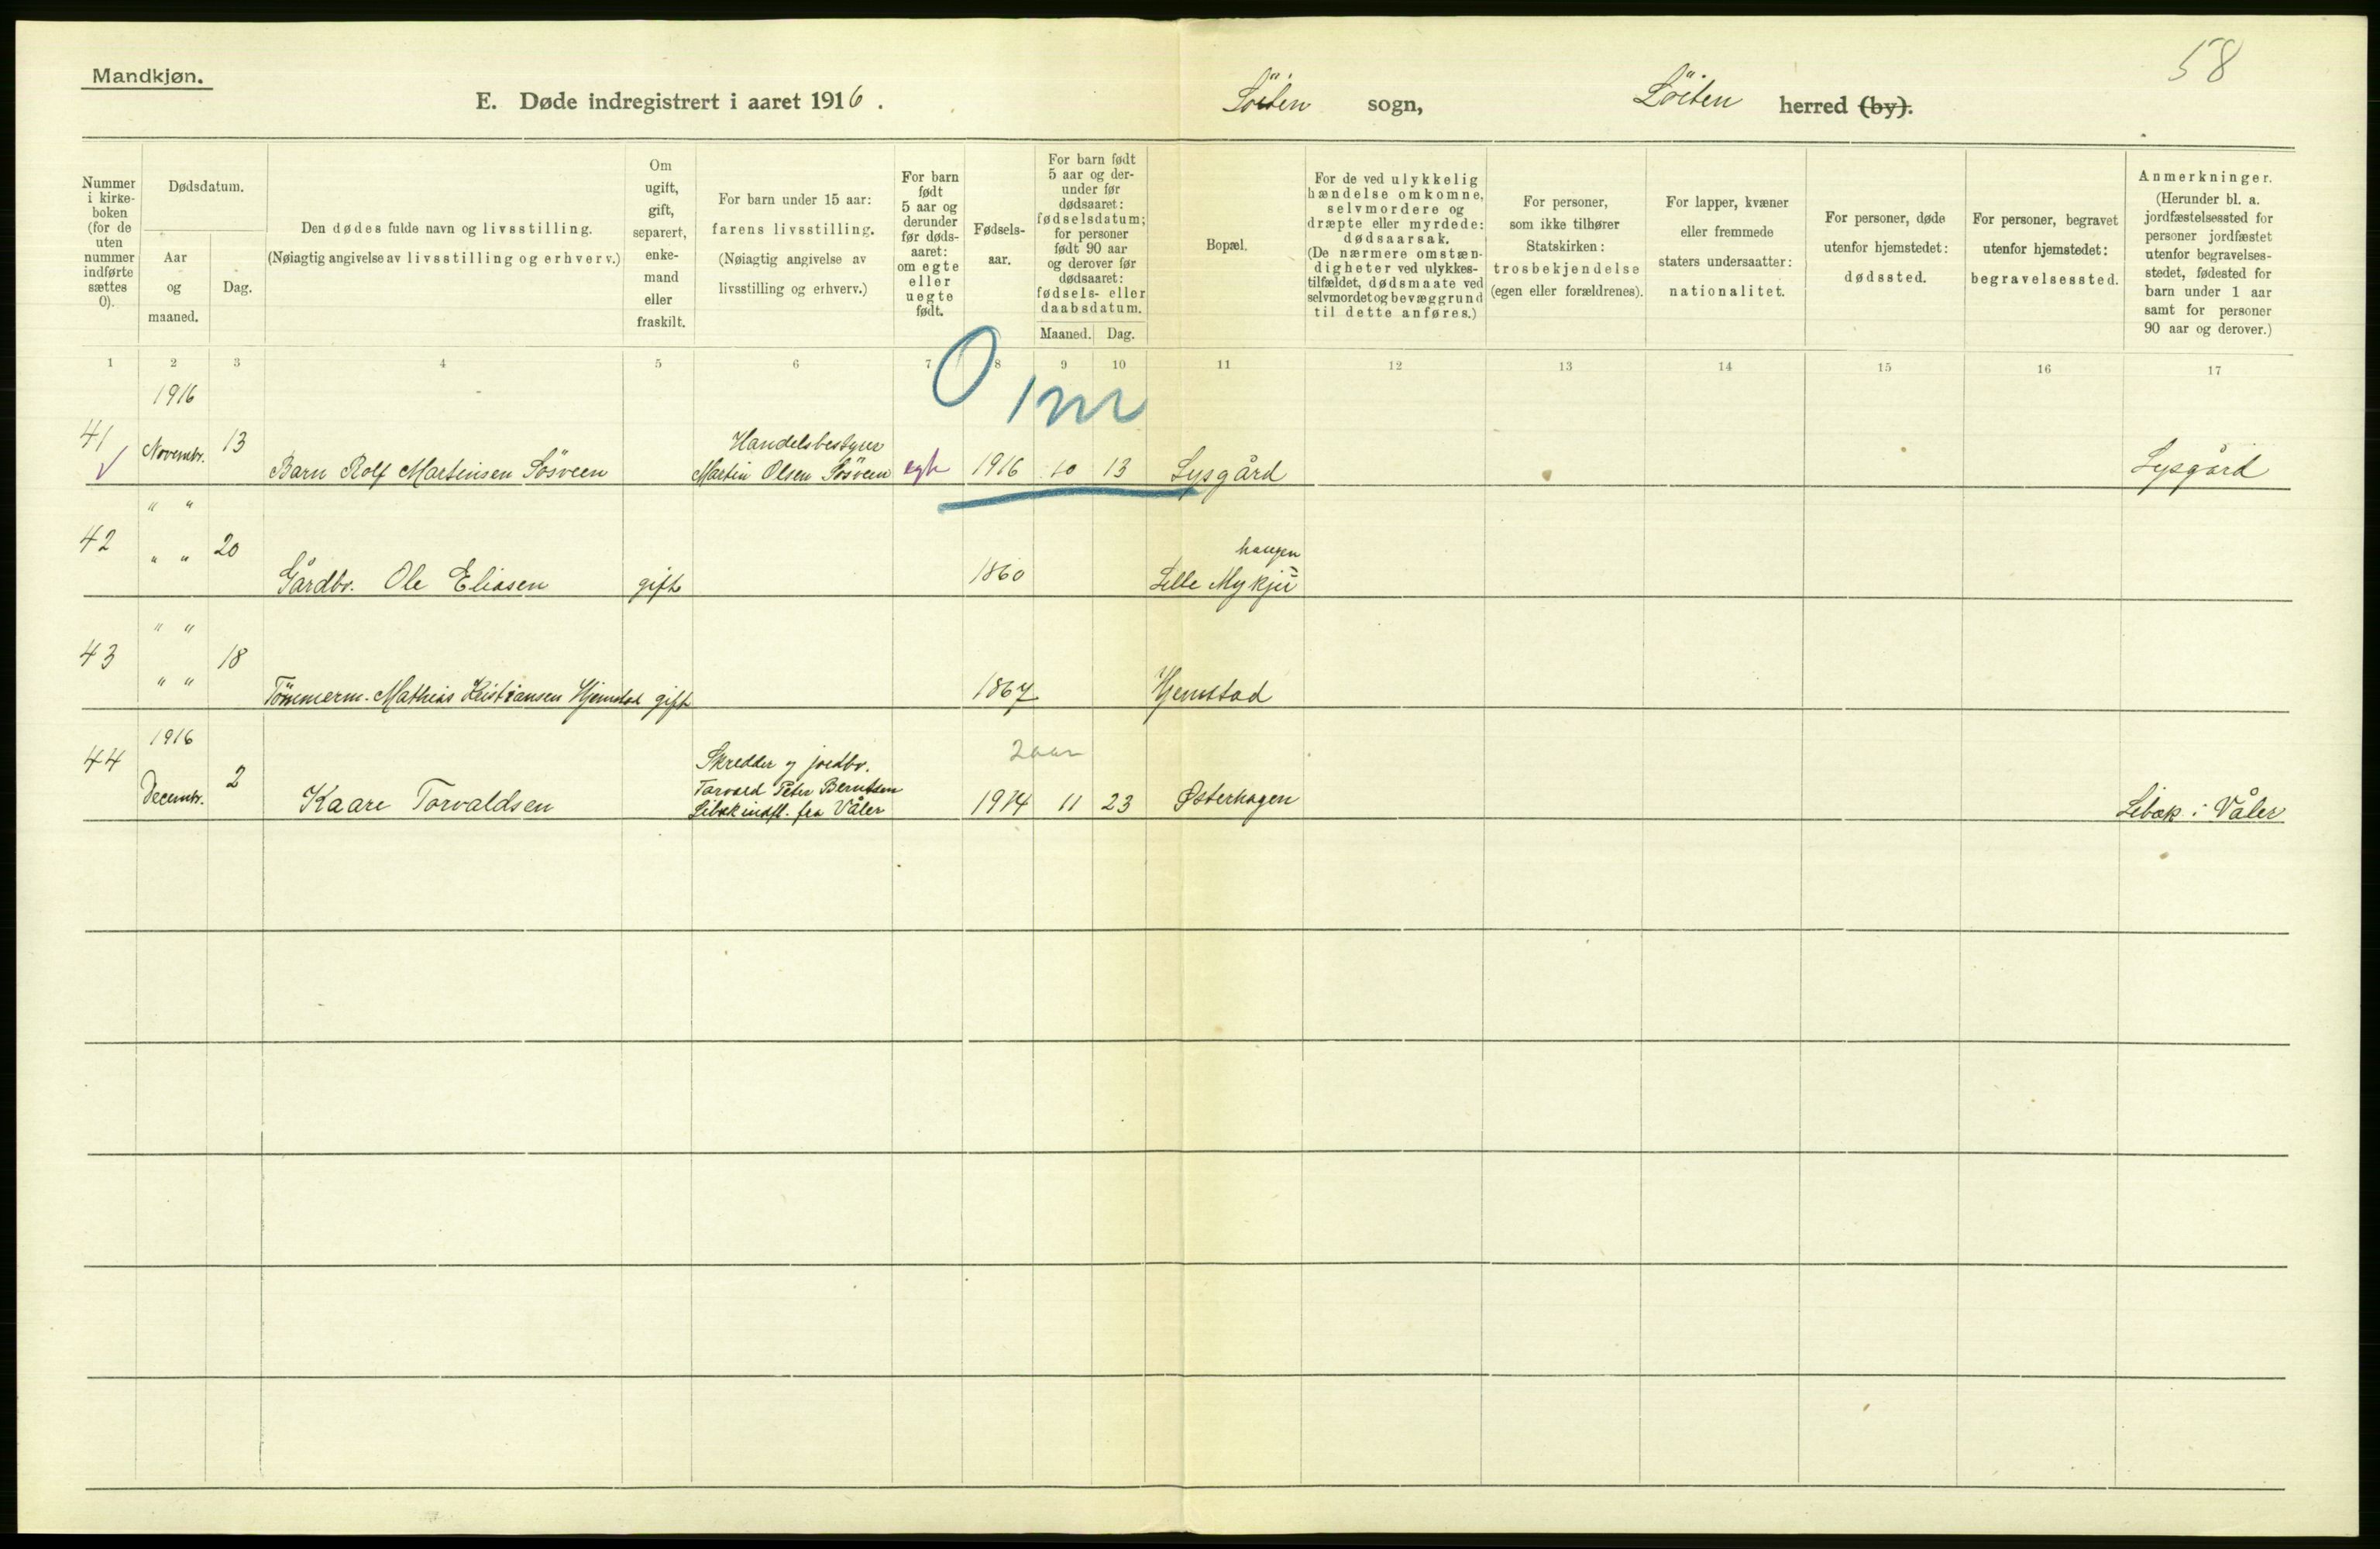 58
Mandkjøn.
E. Døde indregistrert i aaret 1916.
Löiten sogn, Löiten herred (by).
Nummer i kirke-boken (for de uten nummer indførte sættes 0).
Dødsdatum.
Aar og maaned.
Dag.
Den dødes fulde navn og livsstilling.
(Nøiagtig angivelse av livsstilling og erhverv.)
Om ugift, gift, separert, enke-mand eller fraskilt.
For barn under 15 aar:
farens livsstilling.
(Nøiagtig angivelse av livsstilling og erhverv.)
For barn født 5 aar og derunder før døds-aaret: om egte eller uegte født.
Fødsels-aar.
For barn født 5 aar og der-under før dødsaaret: fødselsdatum; for personer født 90 aar og derover før dødsaaret: fødsels- eller daabsdatum.
Maaned. Dag.
Bopæl.
For de ved ulykkelig hændelse omkomne, selvmordere og dræpte eller myrdede: dødsaarsak.
(De nærmere omstæn-digheter ved ulykkes-tilfældet, dødsmaate ved selvmordet og bevæggrund til dette anføres.)
For personer, som ikke tilhører Statskirken: trosbekjendelse (egen eller forældrenes).
For lapper, kvæner eller fremmede staters undersaatter: nationalitet.
For personer, døde utenfor hjemstedet: dødssted.
For personer, begravet utenfor hjemstedet: begravelsessted.
Anmerkninger.
(Herunder bl. a. jordfæstelsessted for personer jordfæstet utenfor begravelses-stedet, fødested for barn under 1 aar samt for personer 90 aar og derover.)
1 2 3 4 5 6 7 8 9 10 11 12 13 14 15 16 17
0 1 m
1916
41 Novembr. 13 Barn Rolf Martinsen Sösveen Handelsbestyrer Martin Olsen Sösveen egte 1916 10 13 Lysgård Lysgård
" "
42 " " 20 Gårdbr. Ole Eliasen gift 1860 Lille Mykjü= haugen
" "
43 " " 18 Tömmerm. Mathias Kristiansen Hjemstad gift 1867 Hjemstad
1916
2 aar
44 Decembr. 2 Kaare Torvaldsen Skredder og jordbr. Torvald Peter Berntsen Libæk indfl. fra Våler 1914 11 23 Østerhagen Libæk i Våler